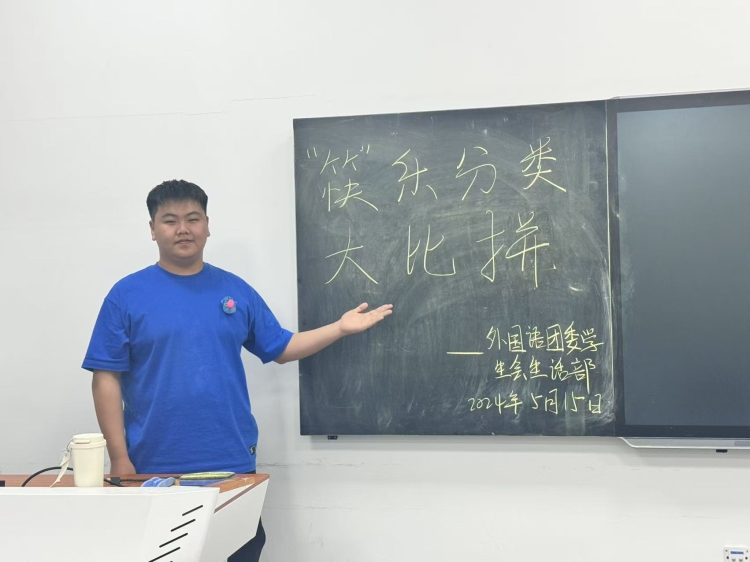 "筷"乐分类
大比拼
——外国语团委学
生会生活部
2024年5月15日